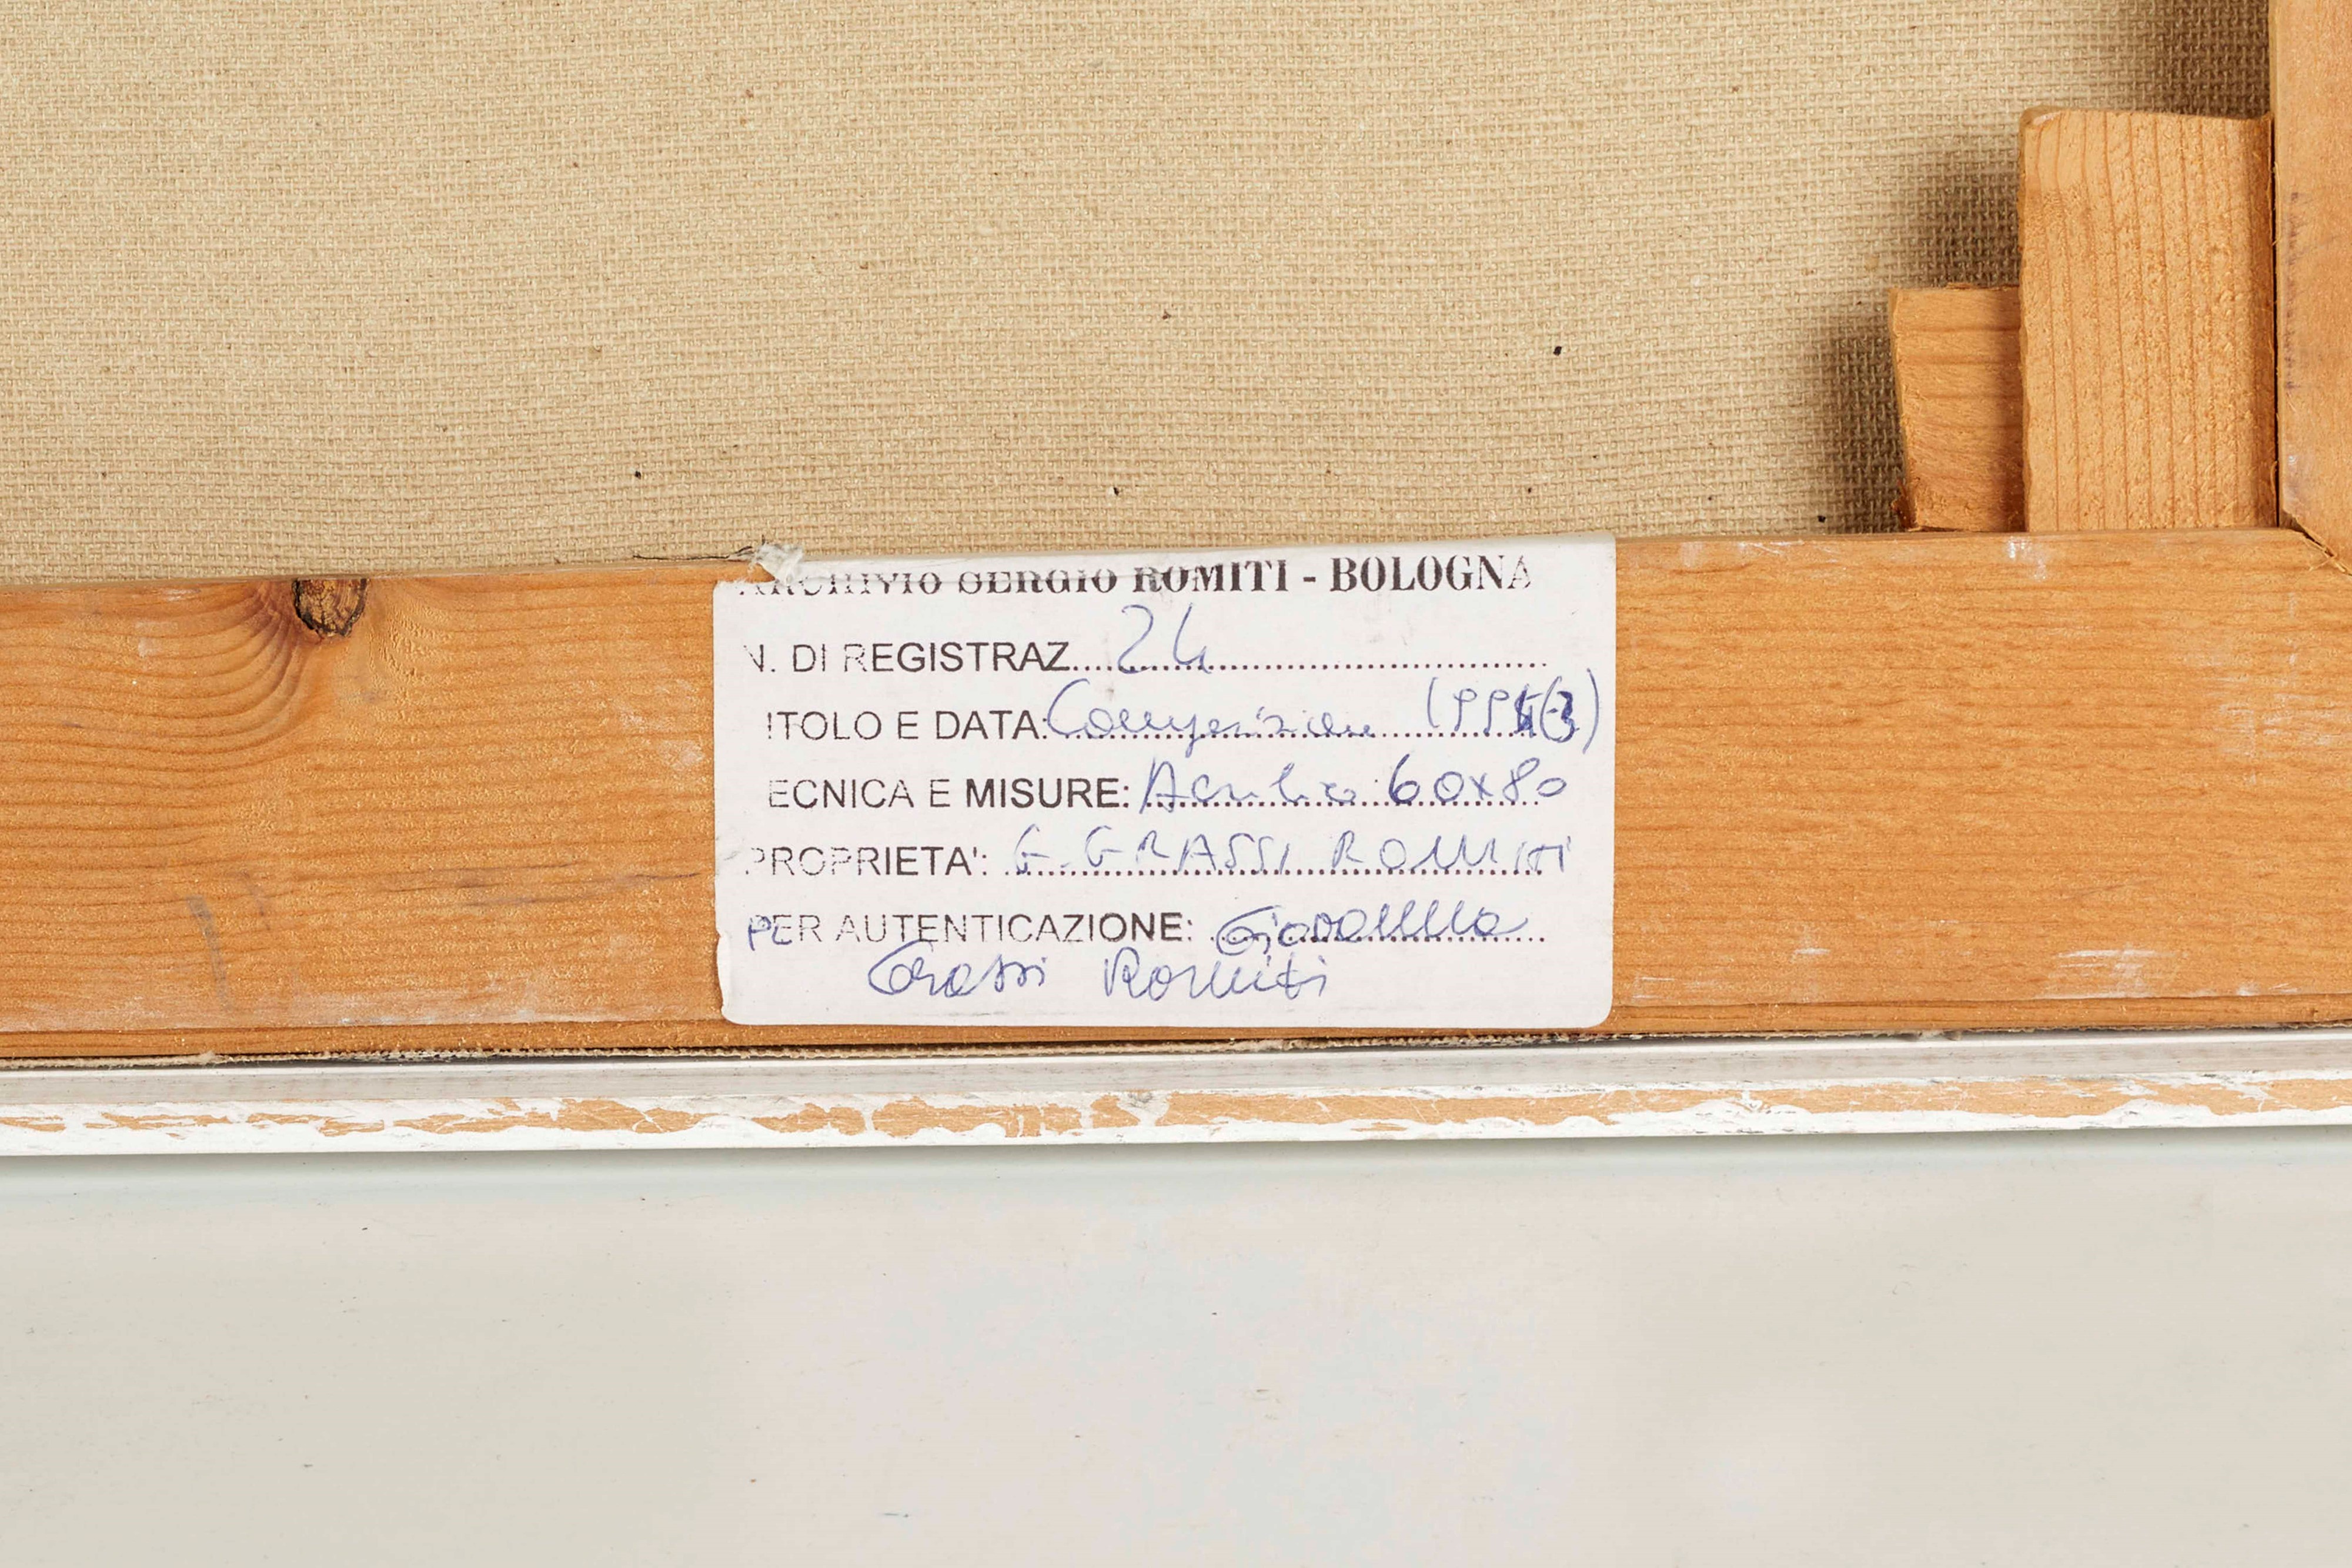 ARCHIVIO SERGIO ROMITI - BOLOGNA
N. DI REGISTRAZ. 24
ITOLO E DATA: Composizione
ECNICA E MISURE: Acrilico 60x80
PROPRIETA': G. GRASSI ROMITI
PER AUTENTICAZIONE: Giovanna
Grassi Romiti